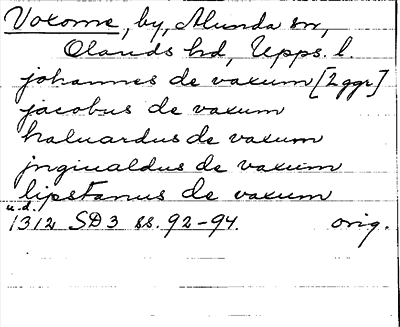 Voxome, by, Alunda sn,
Olands hd, Upps. l.
johannes de vaxum [2 ggr]
jacobus de vaxum
haluardus de vaxum
jngiualdus de vaxum
lipstanus de vaxum
u.d.
1312 SD 3 ss. 92-94. orig.